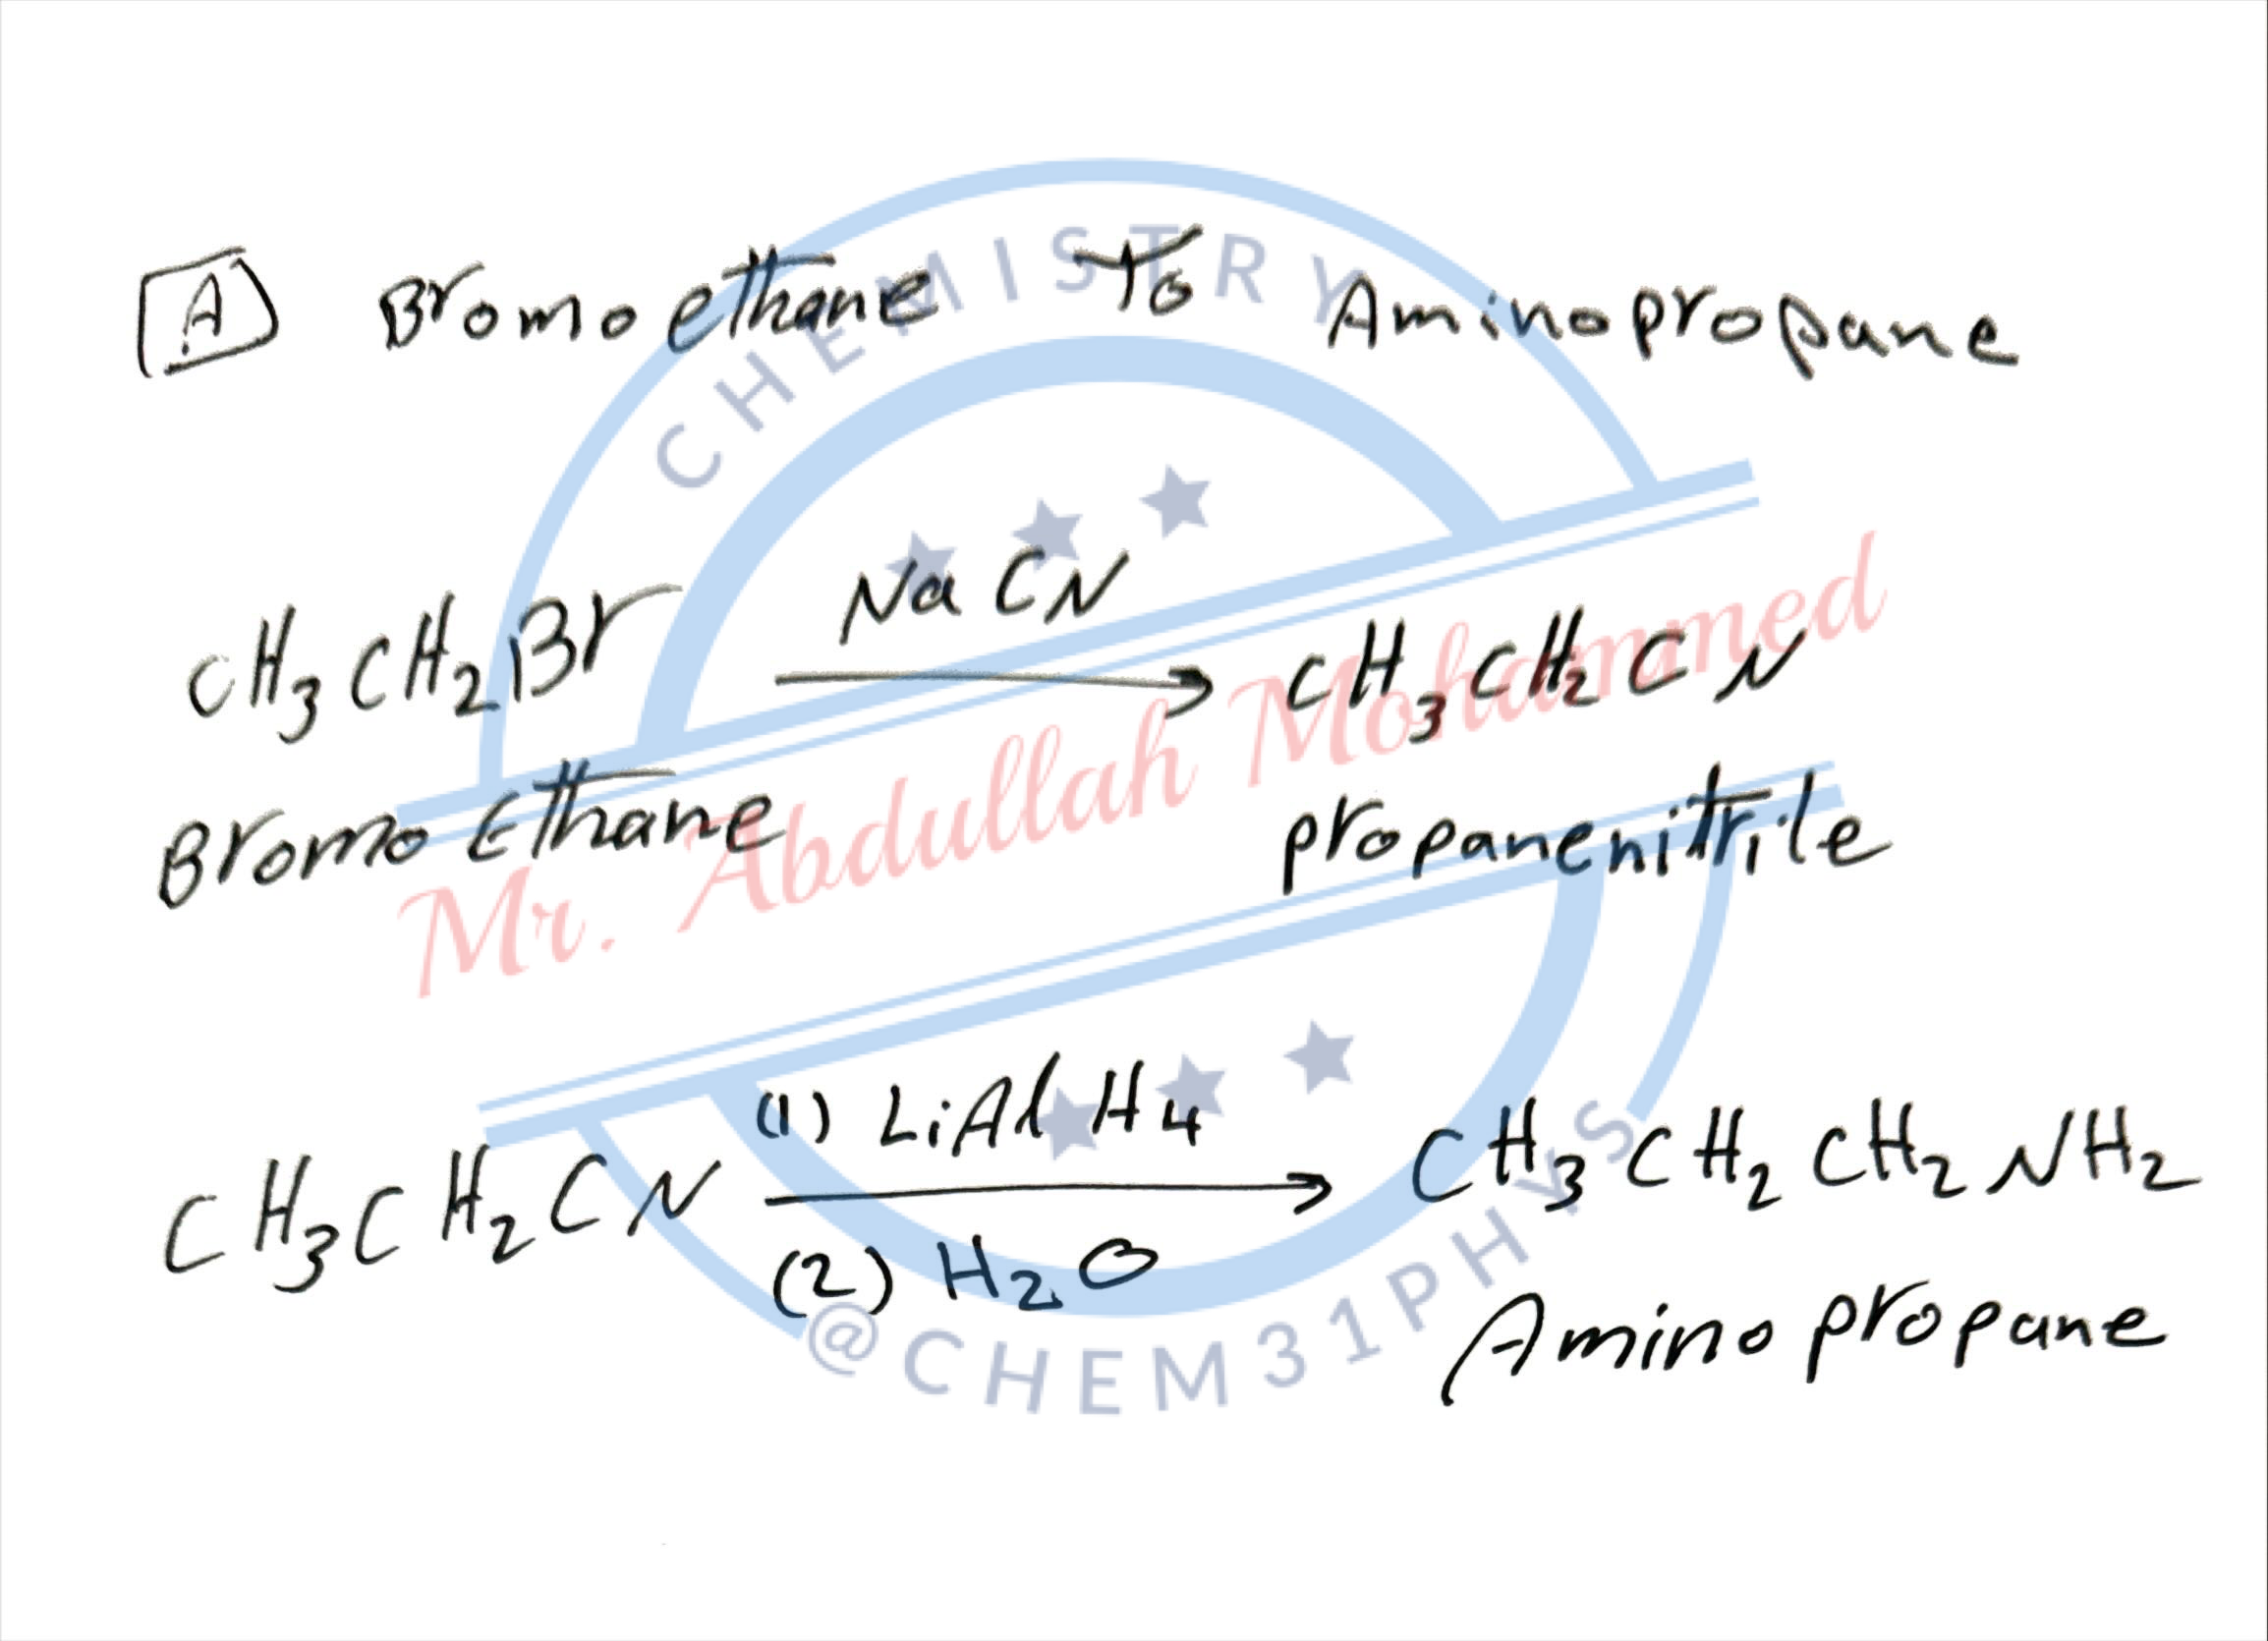 A Bromoethane To Aminopropane
CHEMISTRY
NaCN
CH3CH2Br → CH3CH2CN
Bromo Ethane propanenitrile
Mr. Abdullah Mohammed
(1) LiAlH4
CH3CH2CN → CH3CH2CH2NH2
(2) H2O
Aminopropane
@CHEM31PHYS